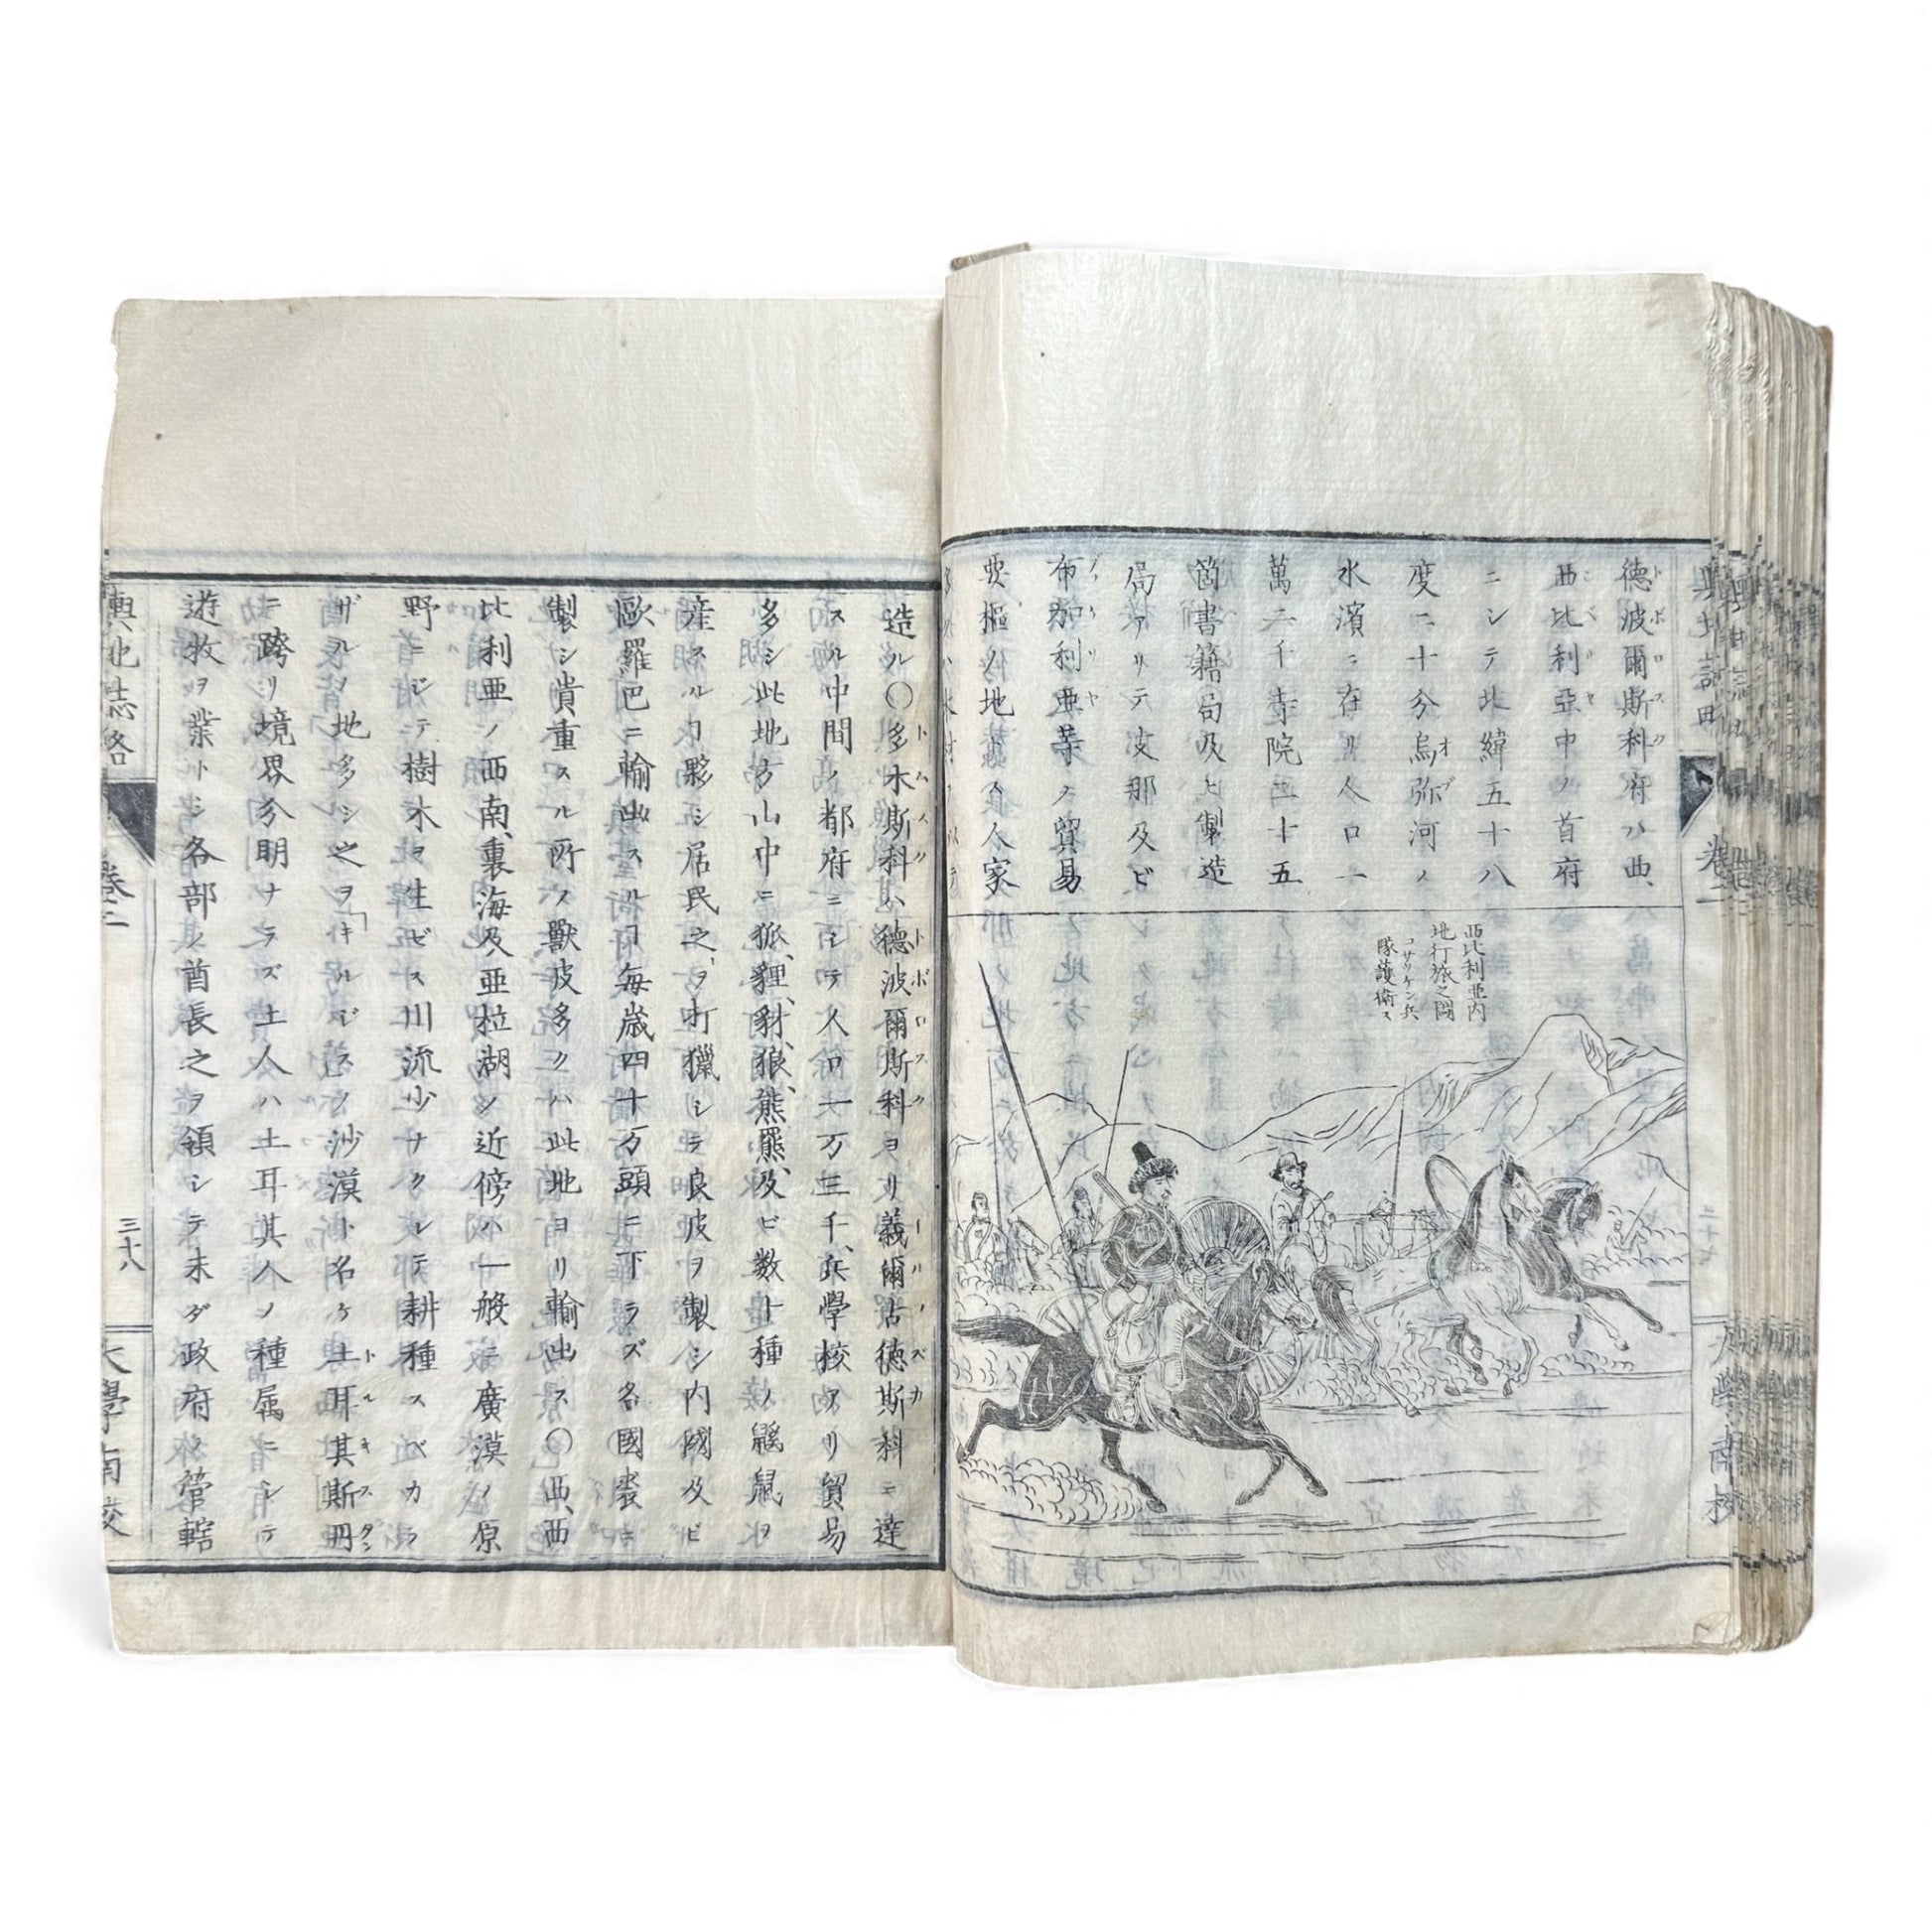 德波爾斯科府ハ西
西比利亞中ノ首府
ニシテ北緯五十八
度二十分烏弥河ノ
水濱ニ在リ人口一
萬二千寺院三十五
箇書籍局及ヒ製造
局アリテ支那及ビ
布加利亜等ノ貿易
要樞ノ地ナリ人家
西比利亜内
地行旅之圖
コサツケン兵
隊護衛ス
造ル〇多木斯科ハ德波爾斯科ヨリ義爾古德斯科ニ達
スル中間ノ都府ニシテ人口一万三千、兵學校アリ貿易
多シ此地方山中ニ狐、狸、豺、狼、熊、羆、及ビ数十種ノ鼠ヲ
産スルヿ夥シ居民之ヲ打獵シテ良皮ヲ製シ内國及ビ
歐羅巴ニ輸出スルヿ毎歳四十万頭ニ下ラズ各國裘ニ
製シ貴重スル所ノ獸皮多クハ此地ヨリ輸出ス〇西、西
比利亜ノ西南、裏海及亜拉湖ノ近傍ハ一般ニ廣漠ノ原
野ニシテ樹木ヲ生ゼス川流少ナクシテ耕種スベカラ
ザルノ地多シ之ヲ「キルジス」ノ沙漠ト名ケ土耳其斯丹
ニ跨リ境界分明ナラズ土人ハ土耳其人ノ種属ニシテ
遊牧ヲ業トシ各部ノ酋長之ヲ領シテ未ダ政府ノ管轄
輿地志略
卷二
三十八
大學南校